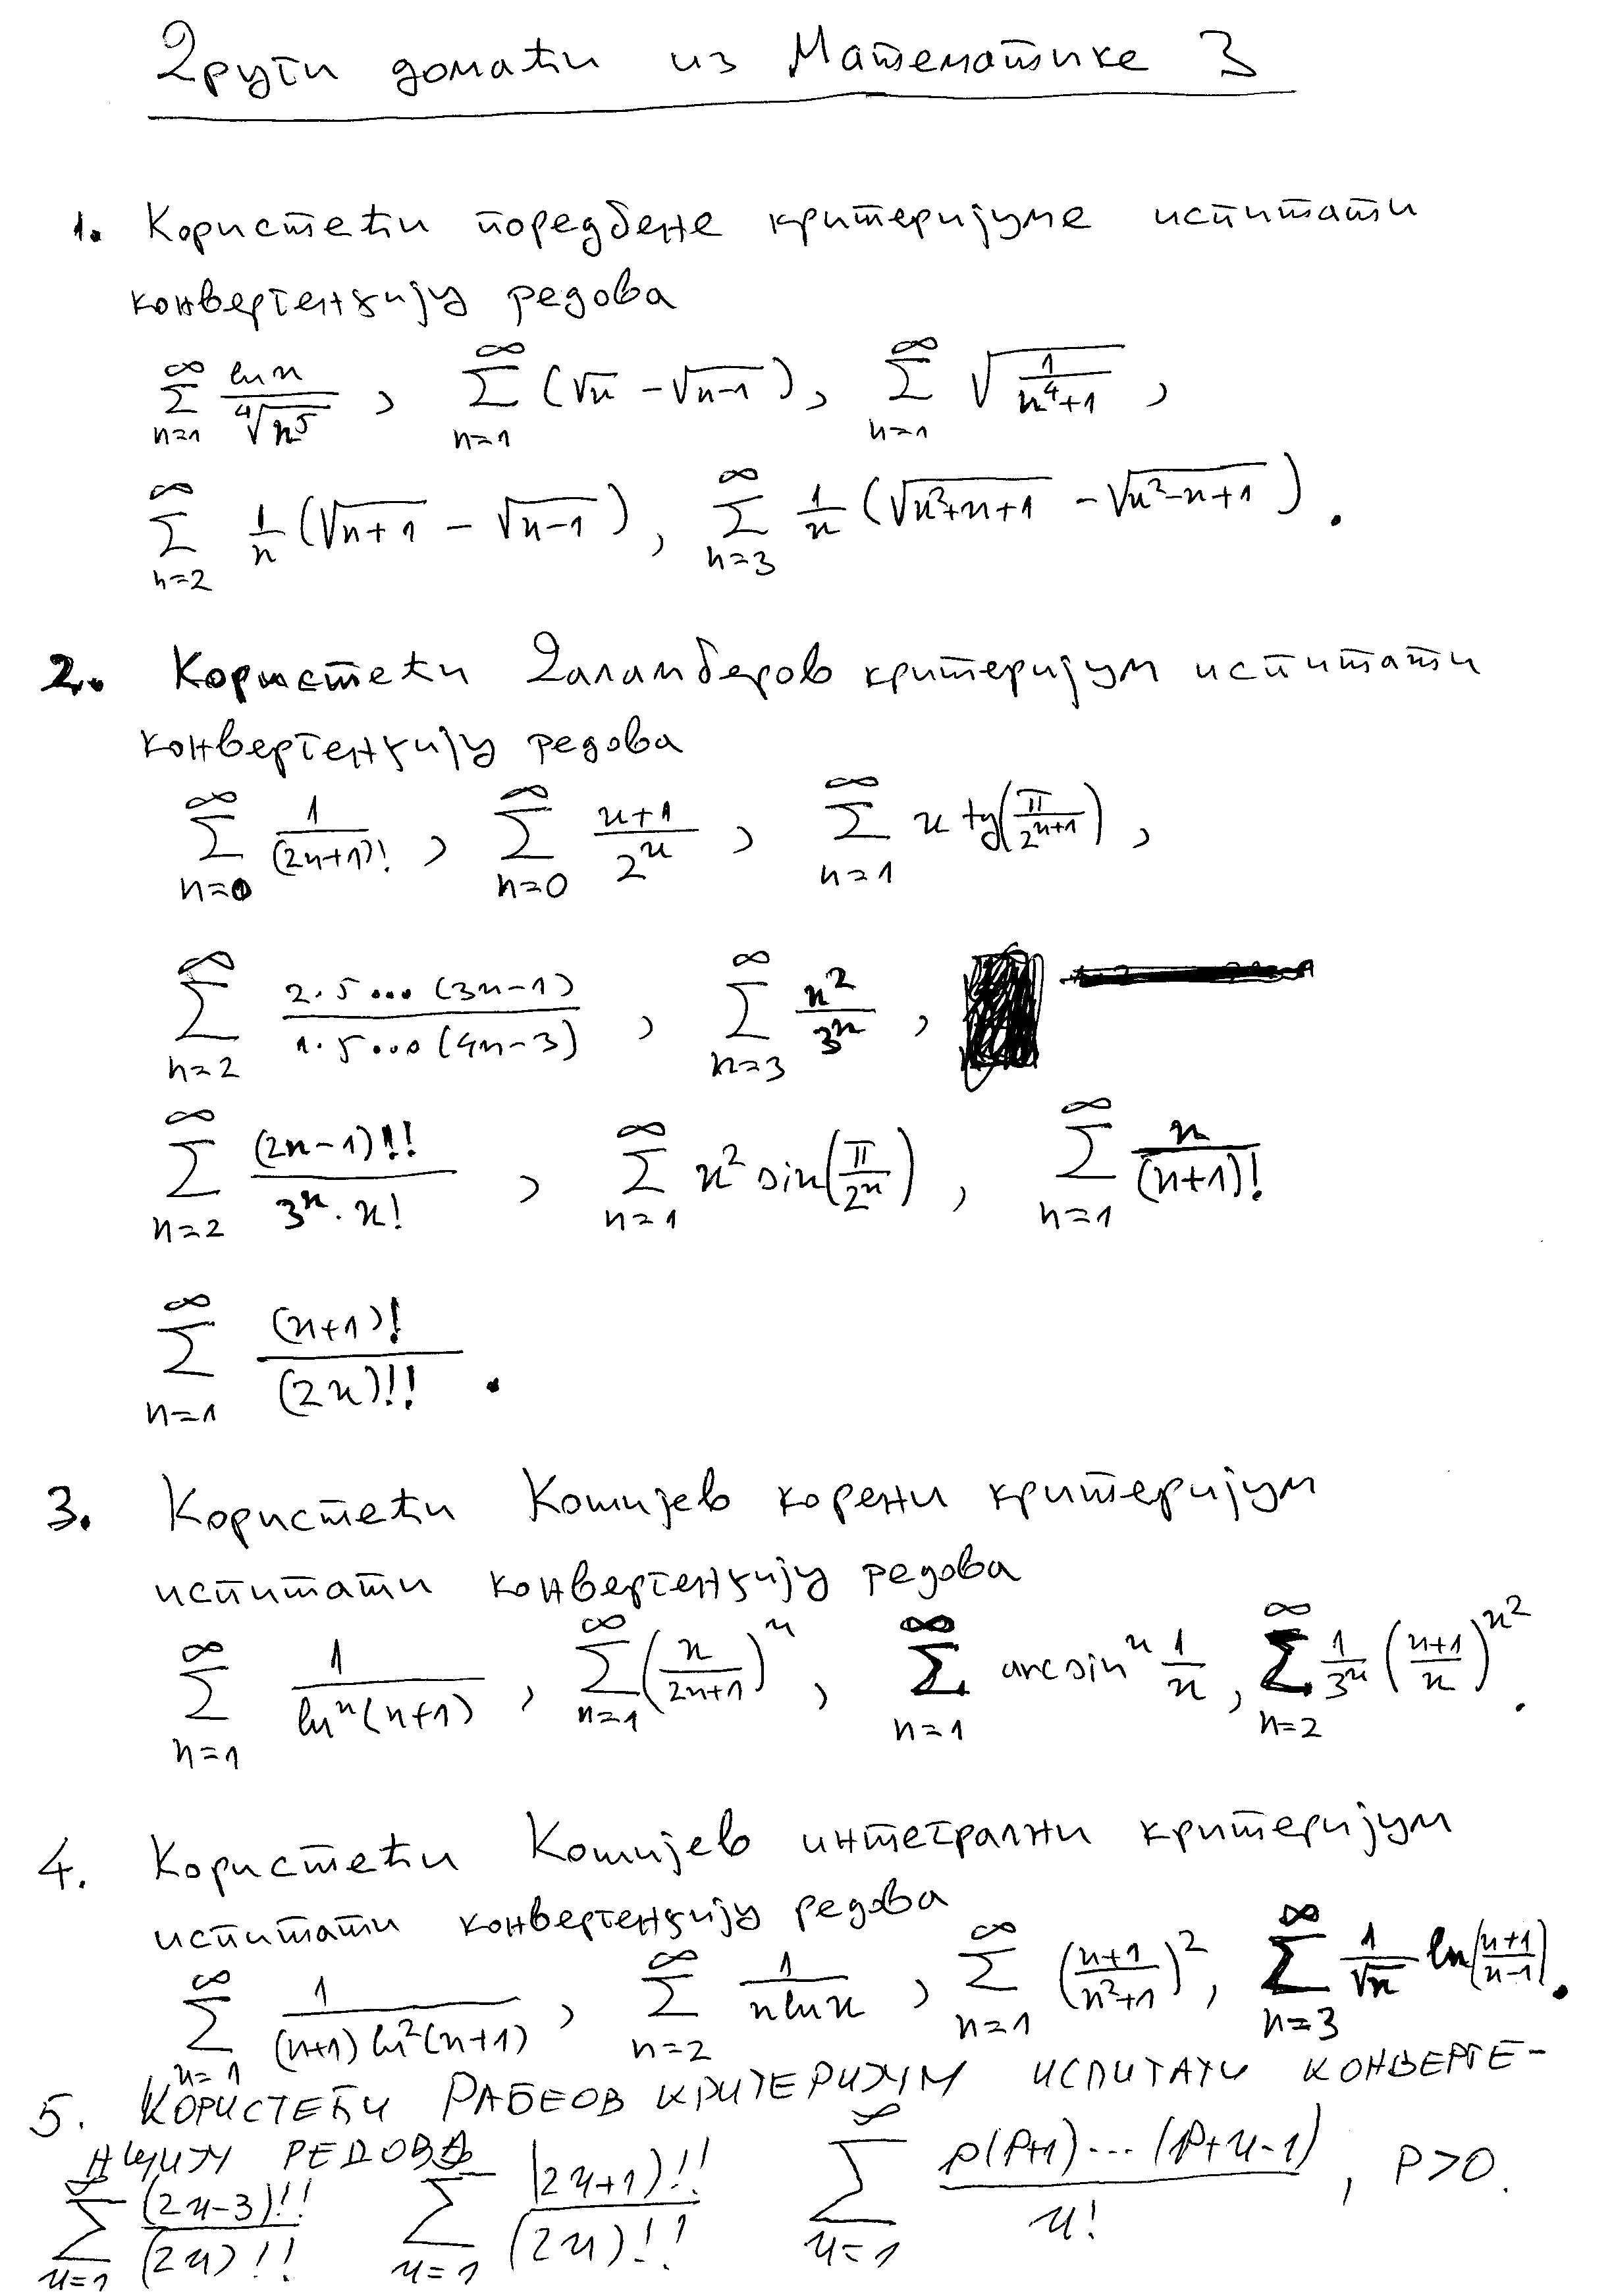 Други домаћи из Математике 3
1. Користећи поредбене критеријуме испитати
конвергенцију редова
∞∑n=1 ln n / ⁴√n⁵ , ∞∑n=1 (√n − √n−1), ∞∑n=1 √(1/(n⁴+1)) ,
∞∑n=2 1/n (√(n+1) − √(n−1)), ∞∑n=3 1/n (√(n²+n+1) − √(n²−n+1)).
2. Користећи Даламберов критеријум испитати
конвергенцију редова
∞∑n=0 1/(2n+1)! , ∞∑n=0 (n+1)/2ⁿ , ∞∑n=1 n tg(π/2ⁿ⁺¹) ,
∞∑n=2 2·5...(3n−1) / 1·5...(4n−3) , ∞∑n=3 n²/3ⁿ ,
∞∑n=2 (2n−1)!! / 3ⁿ·n! , ∞∑n=1 n² sin(π/2ⁿ) , ∞∑n=1 n/(n+1)!
∞∑n=1 (n+1)! / (2n)!! .
3. Користећи Кошијев корени критеријум
испитати конвергенцију редова
∞∑n=1 1/lnⁿ(n+1) , ∞∑n=1 (n/(2n+1))ⁿ , ∞∑n=1 arcsinⁿ 1/n , ∞∑n=2 1/3ⁿ ((n+1)/n)^n² .
4. Користећи Кошијев интегрални критеријум
испитати конвергенцију редова
∞∑n=1 1/((n+1) ln²(n+1)) , ∞∑n=2 1/(n ln n) , ∞∑n=1 ((n+1)/(n²+1))² , ∞∑n=3 1/√n ln((n+1)/(n−1)) .
5. КОРИСТЕЋИ РАБЕОВ КРИТЕРИЈУМ ИСПИТАТИ КОНВЕРГЕ-
НЦИЈУ РЕДОВА
∞∑n=1 (2n−3)!!/(2n)!! ∞∑n=1 (2n+1)!!/(2n)!! ∞∑n=1 p(p+1)...(p+n−1)/n! , p>0.